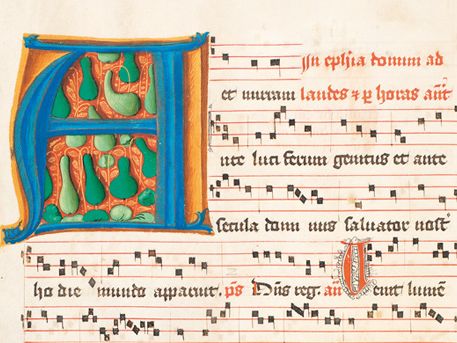 In eph̄ia domini ad
et mirram laudes ⁊ ꝑ horas an̄t
Ante luci ferum genitus et ante
secula domi nus saluator nost᷒
ho die mundo apparuit. p̄s Dn̄s reg. an̄ Uenit lumē